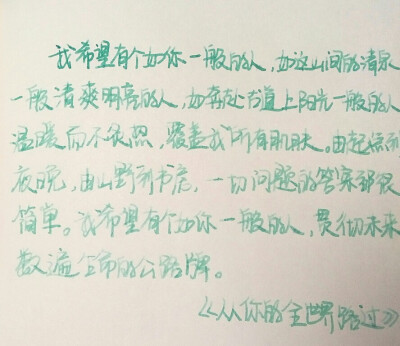 我希望有个如你一般的人，如这山间的清泉
一般清爽明亮的人，如奔赴古道上阳光一般的人
温暖而不，覆盖我所有肌肤。由起点到
夜晚，由山野到书房，一切问题的答案都很
简单。我希望有个如你一般的人，贯彻未来
数遍生命的公路牌。
《从你的全世界路过》